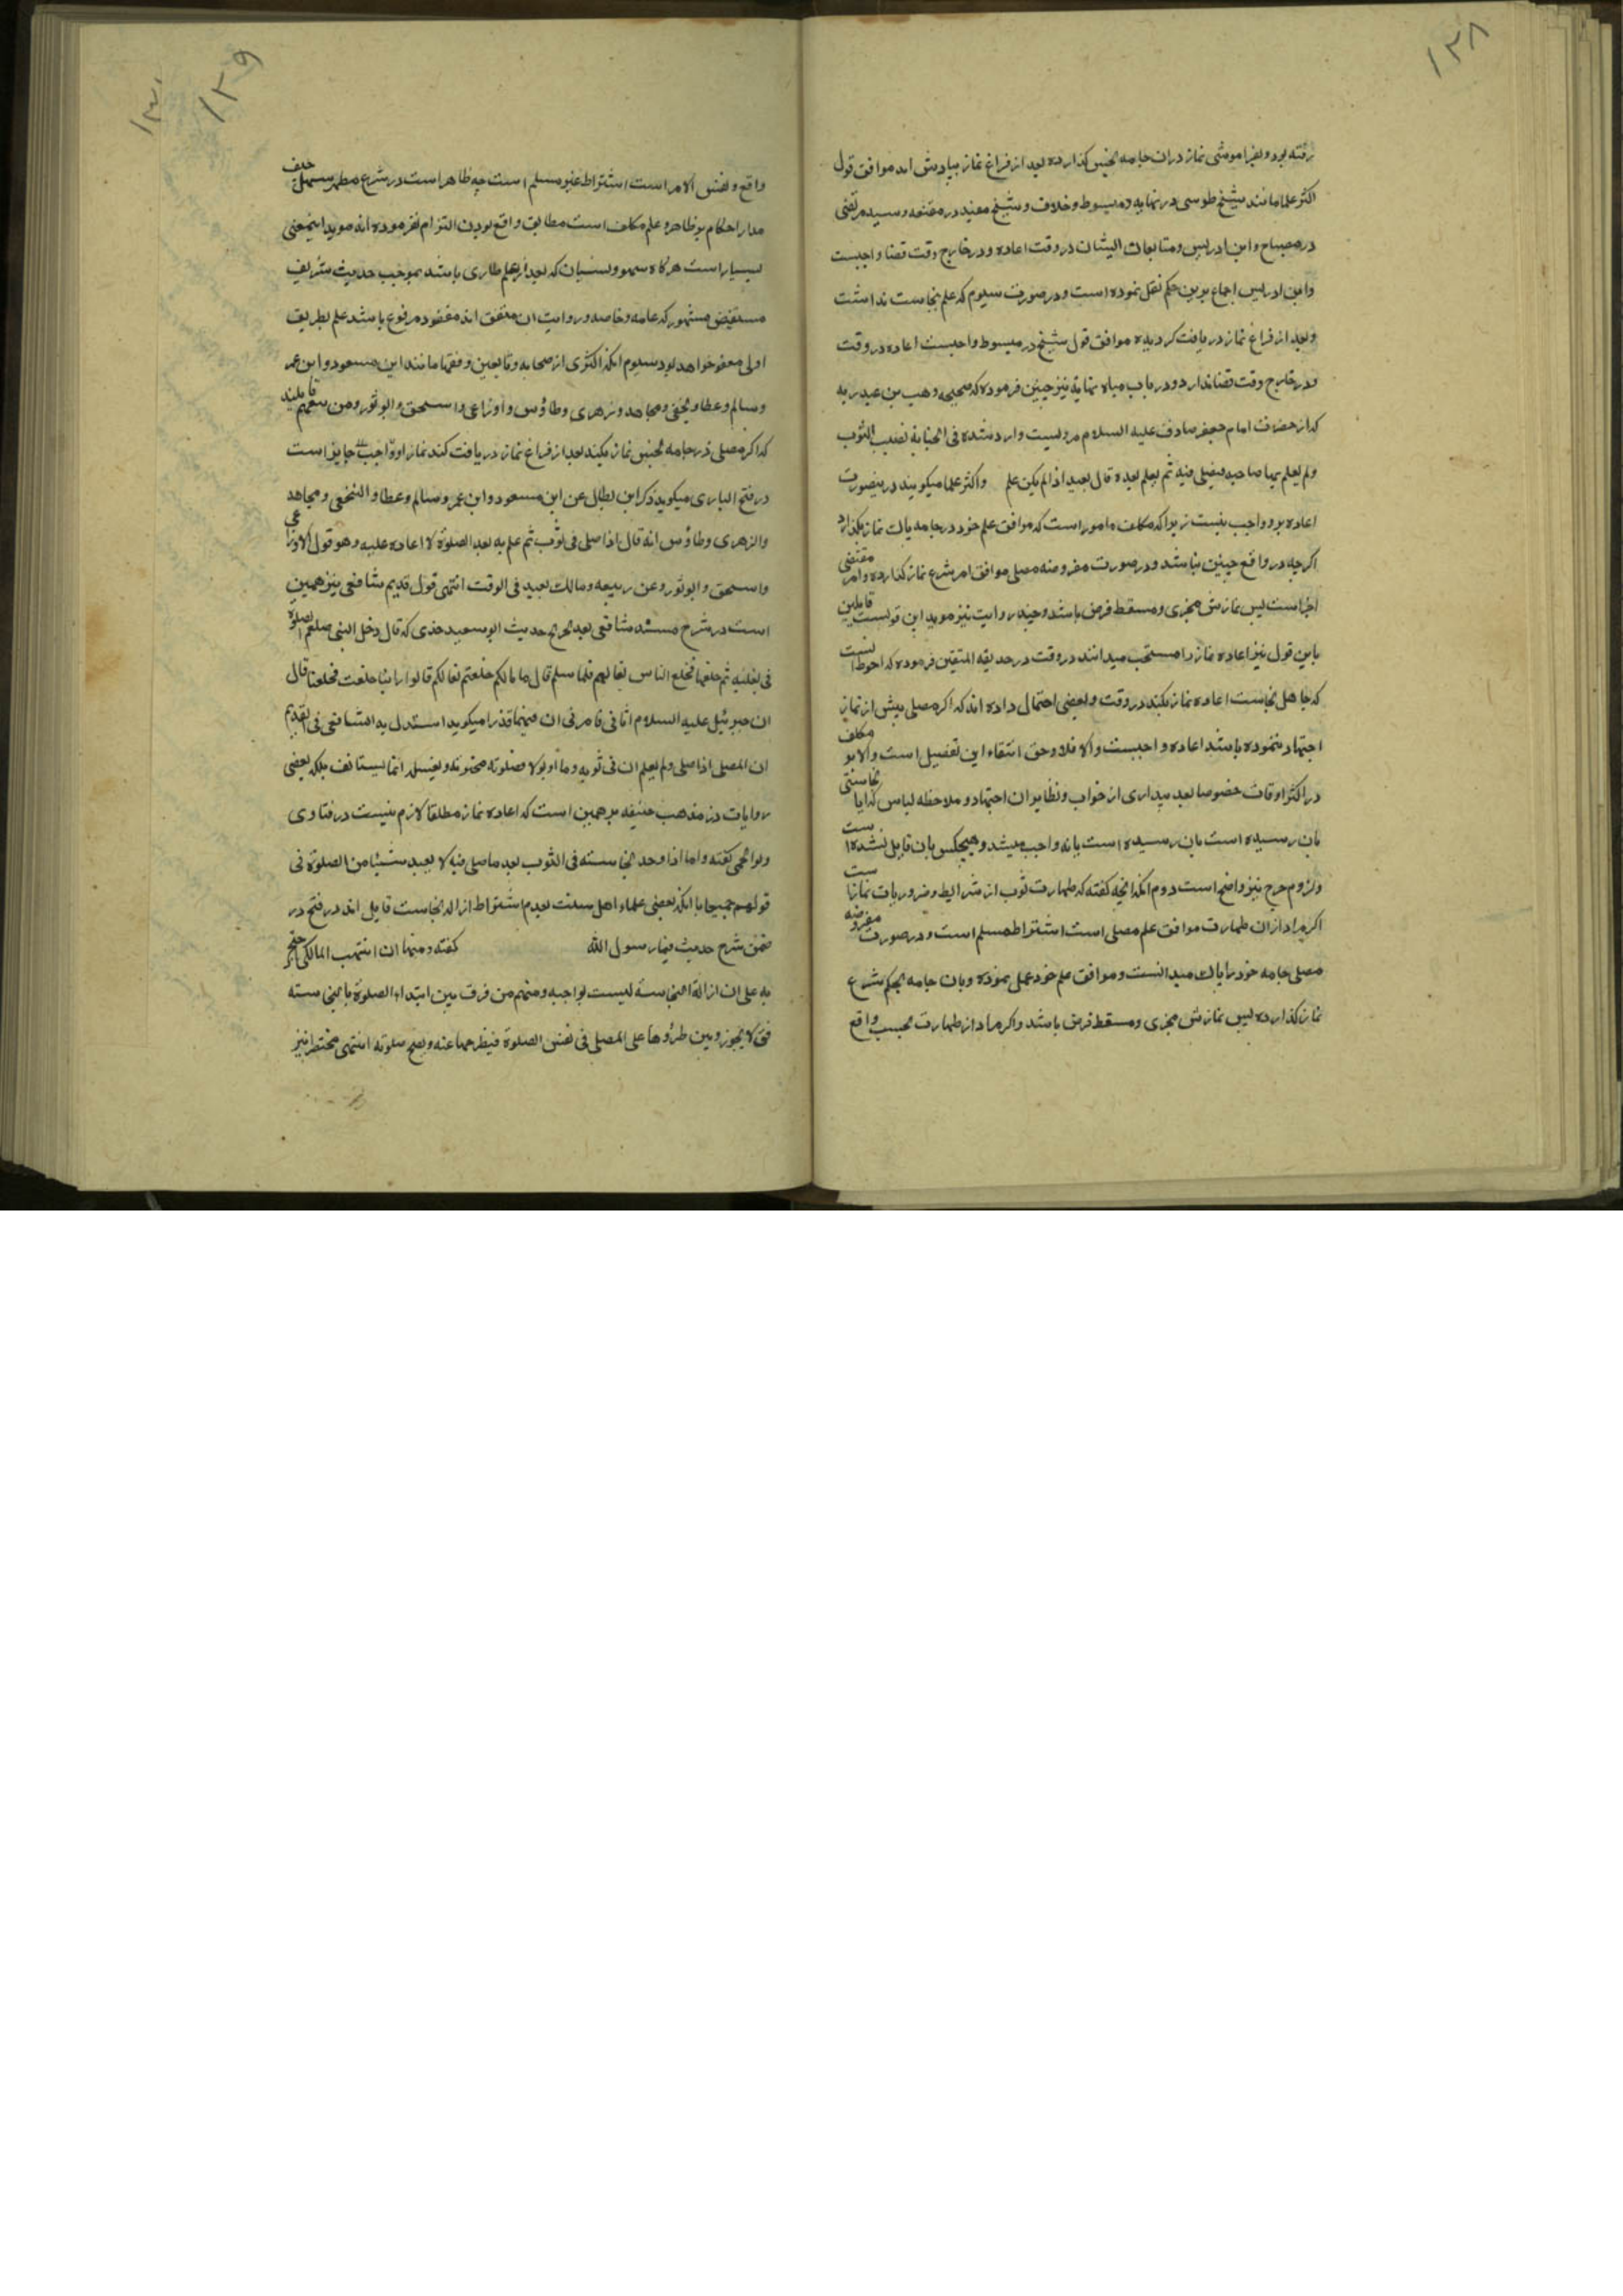 ١٣٨
رفته بود و بفراموشی نماز دران جامه نجس گذارده بعد از فراغ نماز بیادش امد موافق قول
اکثر علما مانند شیخ طوسی در نهایه و مبسوط و خلاف و شیخ مفید در مقنعه و سید مرتضی
در مصباح و ابن ادریس و متابعان ایشان در وقت اعاده و در خارج وقت قضا واجبست
وابن ادریس اجماع برین حکم نقل نموده است و در صورت سیوم که علم بنجاست نداشت
و بعد از فراغ نماز دریافت کردیده موافق قول شیخ در مبسوط واجبست اعاده در وقت
و در خارج وقت قضا ندارد و در باب میاه نهایة نیز چنین فرموده که صحیحه وهب بن عبد ربه
که از حضرت امام جعفر صادق علیه السلام مرویست وارد شده فی الجنابة تصیب الثوب
ولم یعلم بها صاحبه فیصلی فیه ثم یعلم بعده قال یعید اذا لم یکن علم واکثر علما میکویند درینصورت
اعاده برو واجب نیست زیرا که مکلف مامور است که موافق علم خود در جامه پاک نماز بکذارد
اکرچه در واقع چنین نباشد و در صورت مفروضه مصلی موافق امر شرع نماز کذارده و امر مقتضی
اجزا است پس نمازش مجزی و مسقط فرض باشد و چند روایت نیز موید این قولست قایلین
باین قول نیز اعاده نماز را مستحب میدانند در وقت در حدیقه المتقین فرموده که احوط انست
که جاهل نجاست اعاده نماز بکند در وقت و بعضی احتمال داده اند که اکر مصلی پیش از نماز
اجتهاد ننموده باشد اعاده واجبست والا فلا وحق انتفاء این تفصیل است والا بر مکلف
در اکثر اوقات خصوصا بعد بیداری از خواب و نظایر ان اجتهاد و ملاحظه لباس که ایا نجاستی
بان رسیده است یا نه واجب میشد و هیچکس بان قایل نشده است
ولزوم حرج نیز واضح است دوم انکه انچه کفته که طهارت ثوب از شرایط و ضروریات نماز است
اکر مراد ازان طهارت موافق علم مصلی است اشتراط مسلم است و در صورت مفروضه
مصلی جامه خود را پاک میدانست و موافق علم خود عمل نموده و بان جامه بحکم شرع
نماز کذارده پس نمازش مجزی و مسقط فرض باشد و اکر مراد از طهارت بحسب واقع
١٣٩
١٣٠
واقع و نفس الامر است اشتراط غیر مسلم است چه ظاهر است در شرع مطهر سهل حنیف
مدار احکام بر ظاهر و علم مکلف است مطابق واقع بودن التزام نفرموده اند موید اینمعنی
بسیار است هرکاه سهو و نسیان که بعد از علم طاری باشد بموجب حدیث شریف
مستفیض مشهور که عامه و خاصه در روایت ان متفق اند معفو و مرفوع باشد عدم علم بطریق
اولی معفو خواهد بود سیوم انکه اکثری از صحابه و تابعین و فقها مانند ابن مسعود و ابن عمر
وسالم و عطا و نخعی و مجاهد و زهری و طاؤس و اوزاعی و اسحق و ابوثور و من تبعهم قایلند
که اکر مصلی در جامه نجس نماز بکند بعد از فراغ نماز دریافت کند نماز او جایز است
در فتح الباری میکوید ذکر ابن بطال عن ابن مسعود و ابن عمر و سالم و عطا و النخعی و مجاهد
والزهری و طاؤس انه قال اذا صلی فی ثوب ثم علم به بعد الصلوة لا اعاده علیه و هو قول الاوزاعی
واسحق و ابوثور و عن ربیعه و مالک یعید فی الوقت انتهی قول قدیم شافعی نیز همین
است در شرح مسند شافعی بعد تخریج حدیث ابو سعید خدری که قال دخل النبی صلعم الصلوة
فی نعلیه ثم خلعها فخلع الناس نعالهم فلما سلم قال ما بالکم خلعتم نعالکم قالوا راینا خلعت فخلعنا قال
ان جبرئیل علیه السلام اتانی فاخبرنی ان فیهما قذرا میکوید استدل به الشافعی فی القدیم
ان المصلی اذا صلی ولم یعلم ان فی ثوبه دما او بولا فصلوته مجزیه و یغسله لما یستانف بلکه بعضی
روایات در مذهب حنیفه بر همین است که اعاده نماز مطلقا لازم نیست در فتاوی
ولوالجی کفته و اما اذا وجد النجاسته فی الثوب بعد ما صلی فیه لا یعید شیئا من الصلوة فی
قولهم جمیعا با انکه بعضی علماء اهل سنت بعدم اشتراط ازاله نجاست قایل اند در فتح در
ضمن شرح حدیث فثار رسول الله کفته و منها ان اشهب المالکی احتج
به علی ان ازالة النجاسة لیست بواجبه و منهم من فرق بین ابتداء الصلوة بالنجاسته
فقال لا یجوز و بین طرؤها علی المصلی فی نفس الصلوة فیطرحها عنه و یصح صلوته انتهی مختصرا نیز